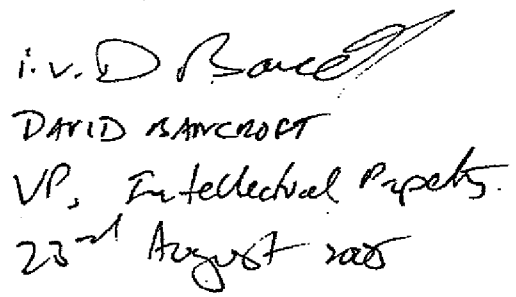 i.v. D Bancroft
DAVID BANCROFT
VP, Intellectual Property.
23rd August 2005